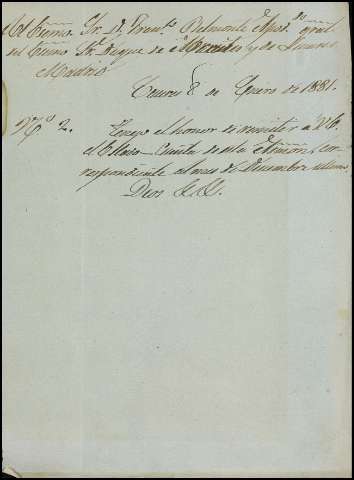 Al Excmo. Sr. D. Franco. Belmonte Apodo. gral.
del Excmo. Sr. Duque de y de Linares
Madrid
Linares 8 de Enero de 1881.
No. 2. Tengo el honor de remitir a V.E.
el Estado-Cuenta de esta Admon., cor-
respondiente al mes de Diciembre último
Dios &&.